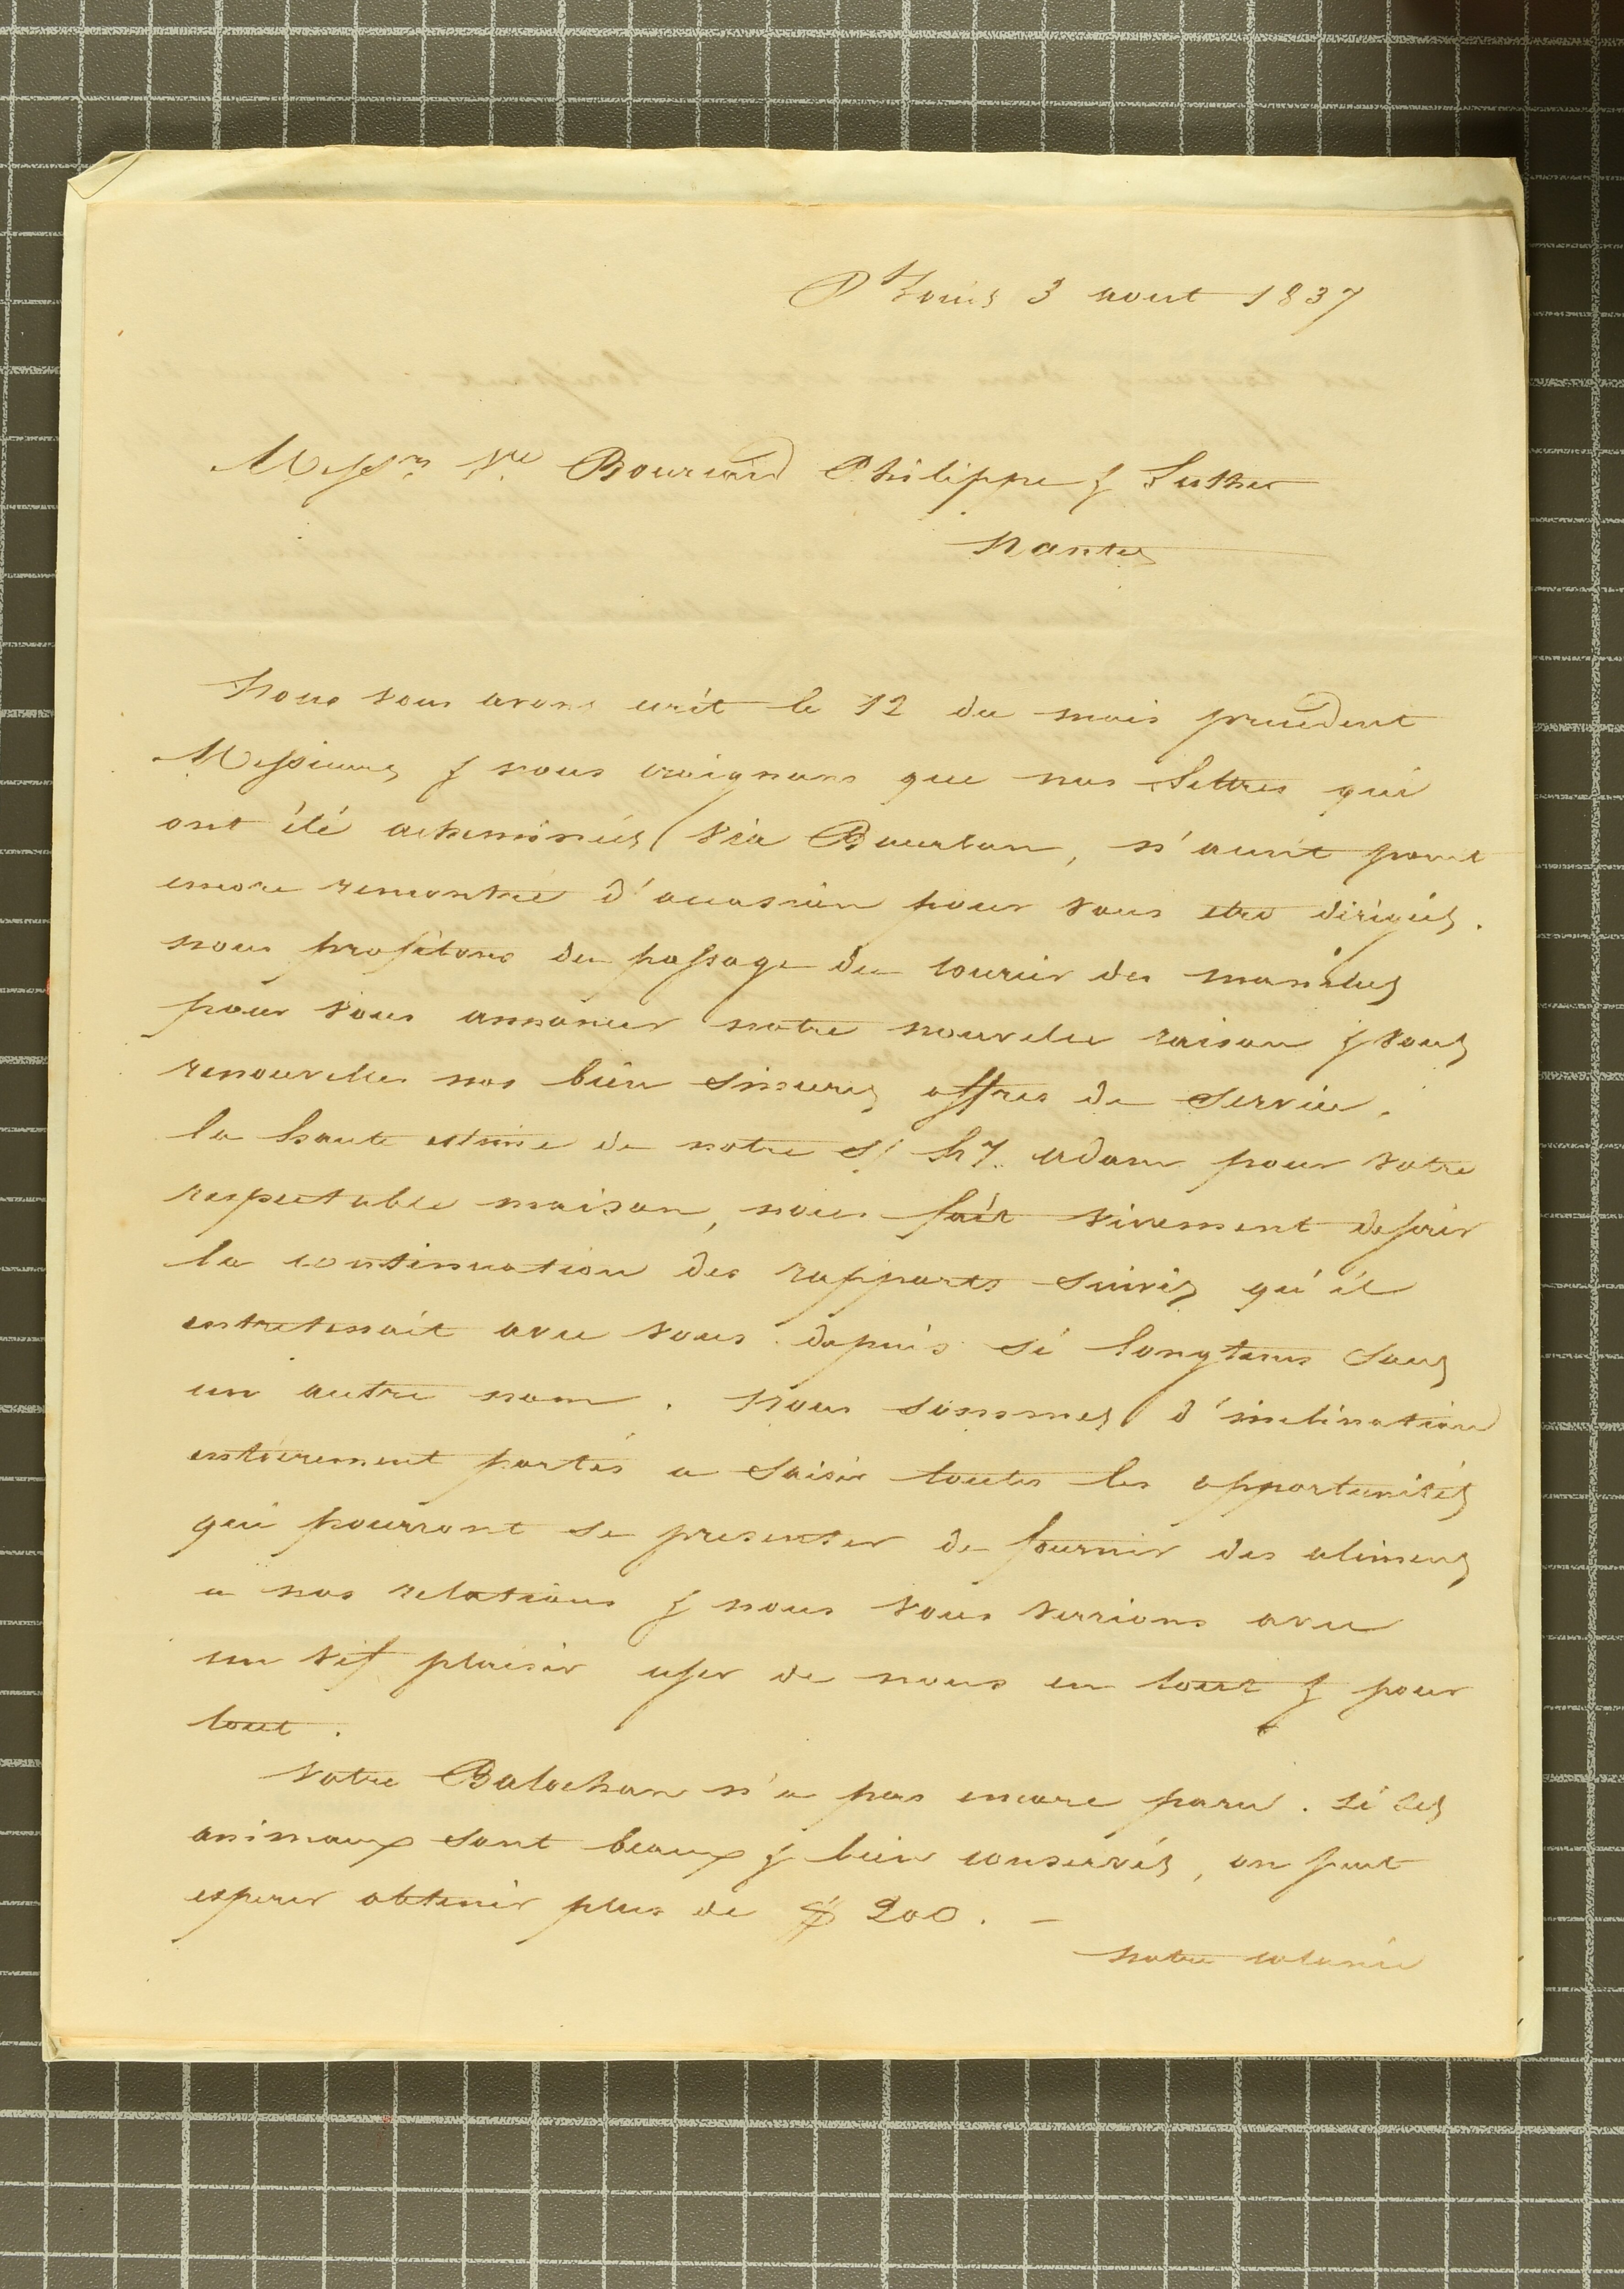 Pt Louis 3 aout 1837
Messrs Ve Bourcard Philippe & Luther
Nantes
Nous vous avons ecrit le 12 du mois precedent
Messieurs & nous craignons que nos lettres qui
ont été acheminées via Bourbon, n'aient point
encore rencontré d'occasion pour vous etre dirigées.
nous profitons du passage du courier des
pour vous annoncer notre nouvelle raison & vous
renouveller nos bien sinceres offres de service.
la haute estime de notre Sr hy. adam pour votre
respectable maison, nous fait vivement desirer
la continuation des rapports suivis qu'il
entretenait avec vous depuis si longtems sous
un autre nom. Nous sommes d'inclination
entierement portés a saisir toutes les opportunités
qui pourront se presenter de fournir des alimens
a nos relations & nous vous verrions avec
un vif plaisir user de nous en tout & pour
tout.
Votre Balochan n'a pas encore paru. si ses
animaux sont beaux & bien conservés, on peut
esperer obtenir plus de $ 200. –
notre colonie